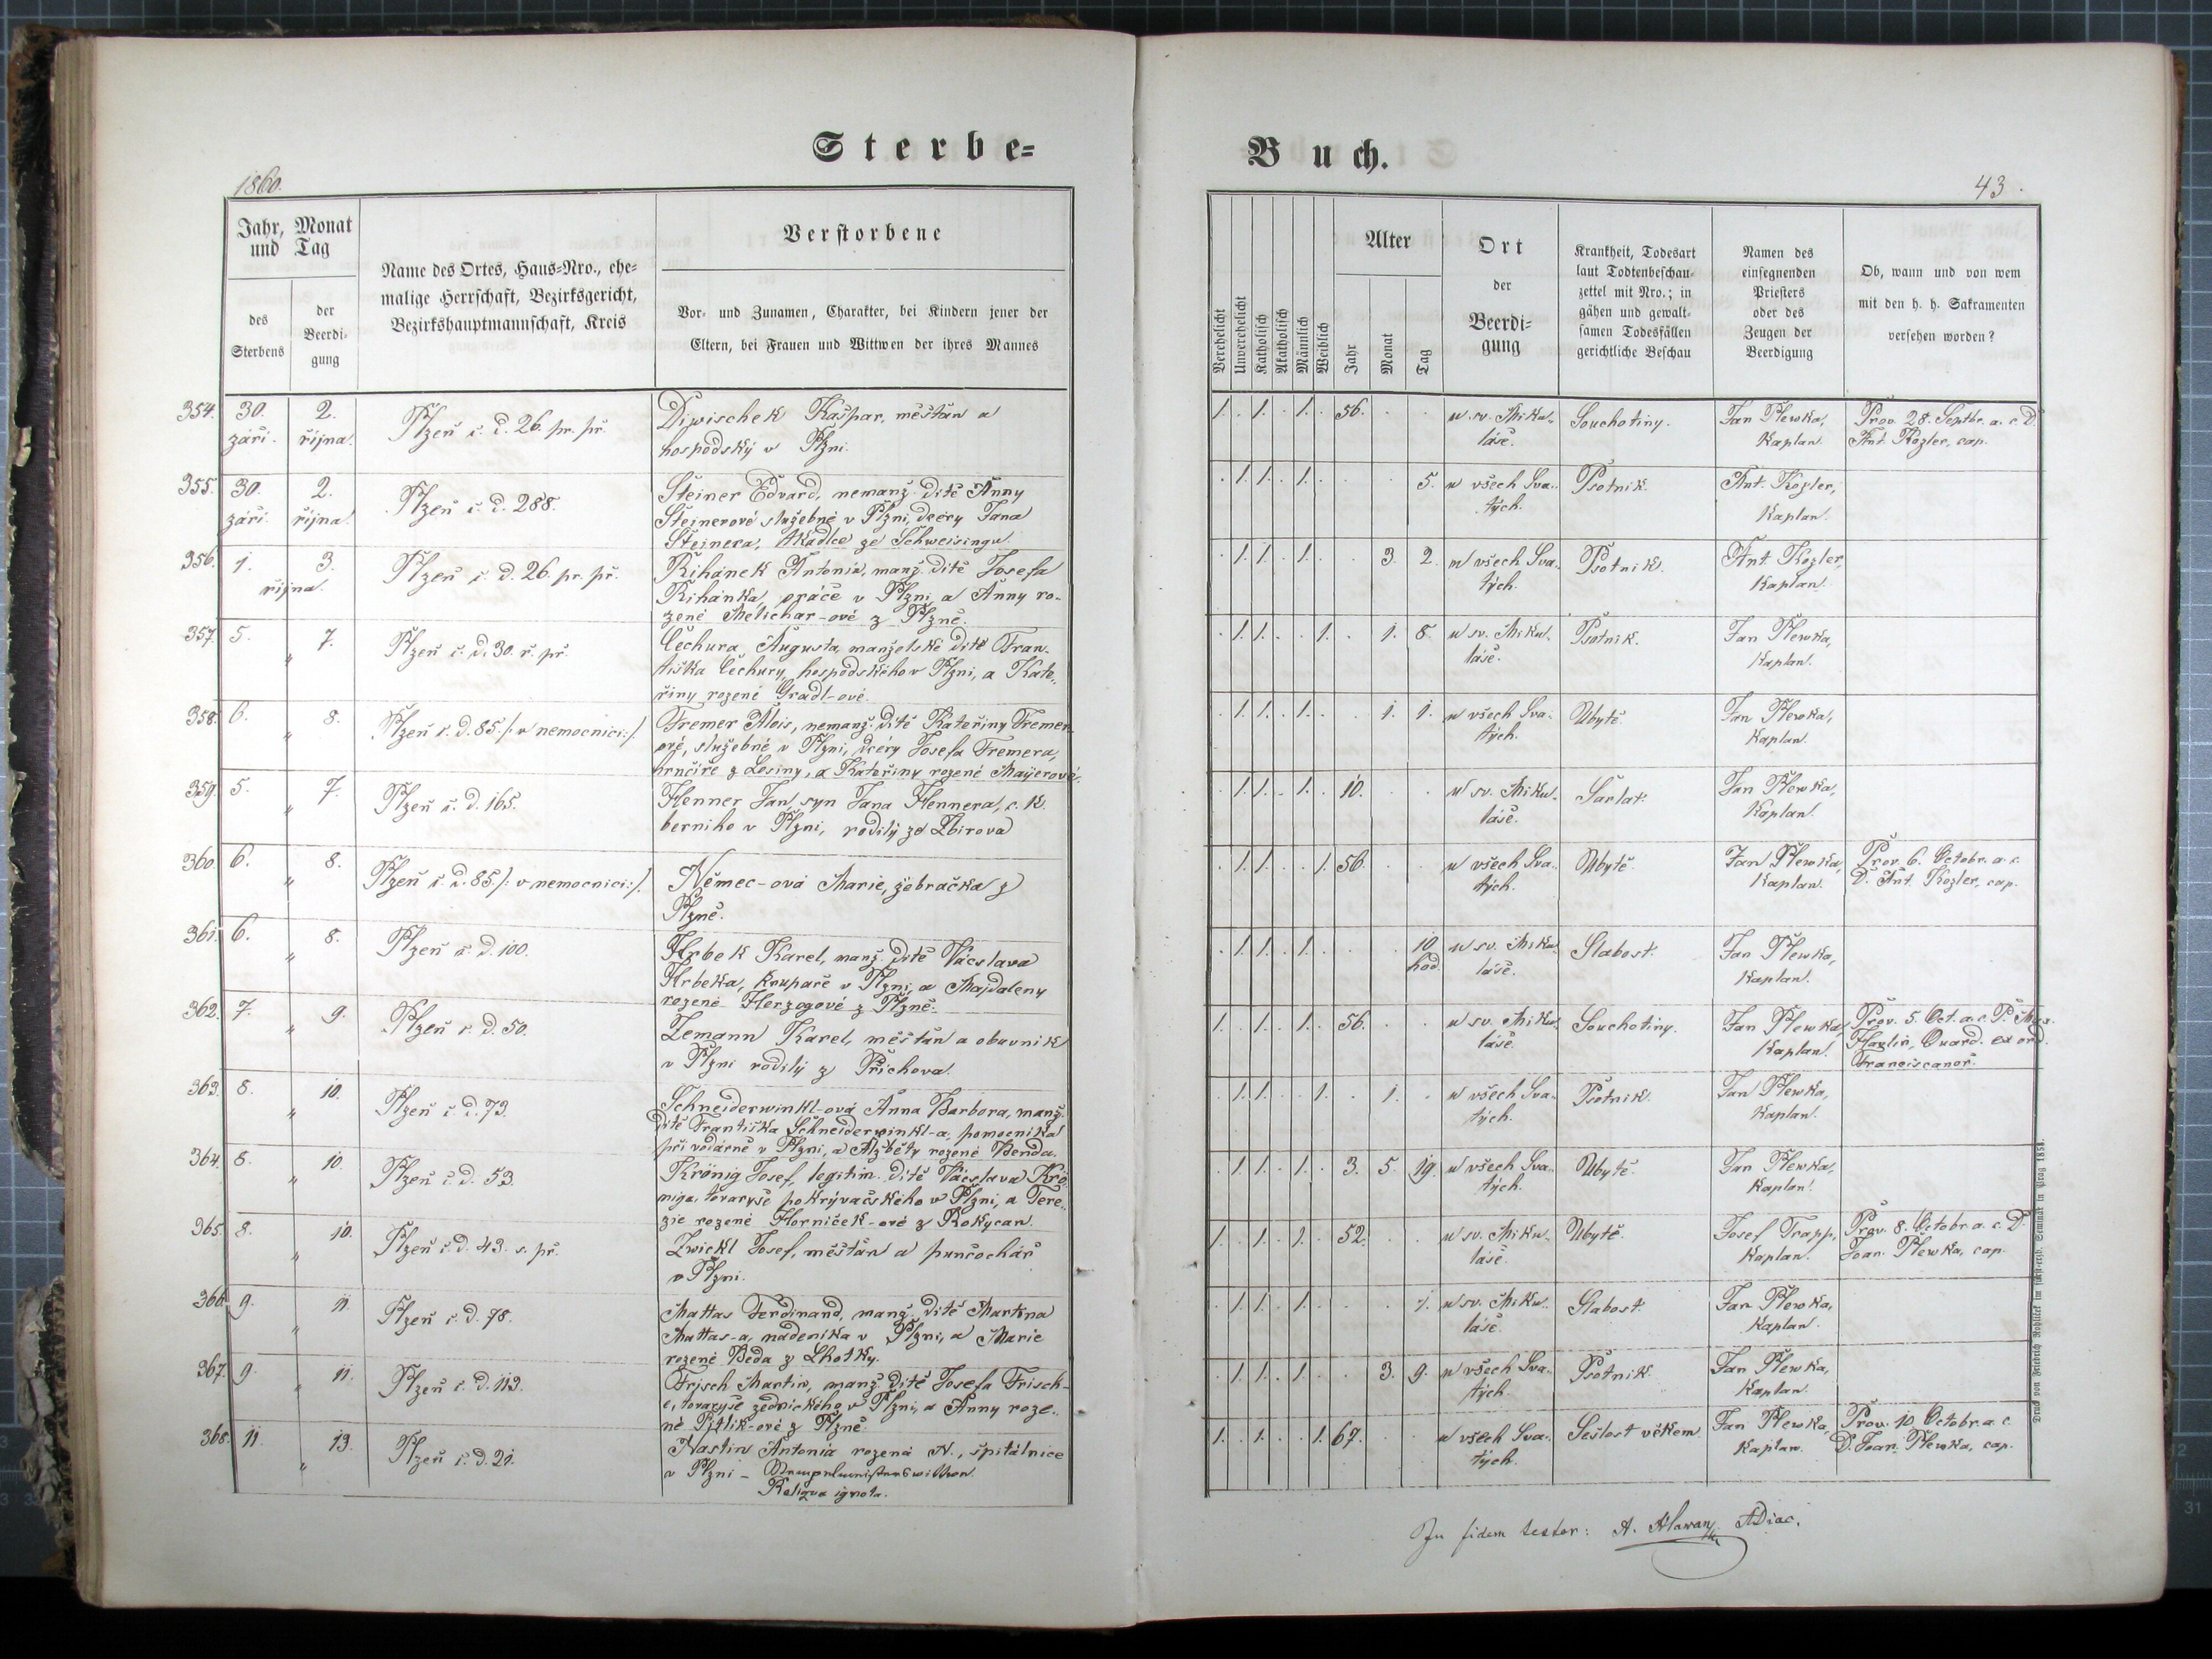 Sterbe=
1860.
Jahr, Monat
und Tag
des
Sterbens
der
Beerdi-
gung
Name des Ortes, Haus-Nro., ehe-
malige Herrschaft, Bezirksgericht,
Bezirkshauptmannschaft, Kreis
Verstorbene
Vor- und Zunamen, Charakter, bei Kindern jener der
Eltern, bei Frauen und Wittwen der ihres Mannes
354. 30. 2. Plzeň č. d. 26. pr. př. Diwischek Kašpar, měštan a
září. října. hospodský v Plzni.
355. 30. 2. Plzeň č. d. 288. Šteiner Edvard, nemanž. dítě Anny
září. října. Šteinerové služebné v Plzni, dcéry Jana
Šteinera, tkadlce ze Schweisingu.
356. 1. 3. Plzeň č. d. 26. pr. př. Řihánek Antonín, manž. dítě Josefa
října. Řihánka, práče v Plzni, a Anny ro-
zené Melichar-ové z Plzně.
357. 5. " 7. Plzeň č. d. 30. ř. př. Čechura Augusta, manželské dítě Fran-
tiška Čechury, hospodského v Plzni, a Kate-
řiny rozené Gradl-ové.
358. 6. " 8. Plzeň č. d. 85. /: v nemocnici :/. Fremer Alois, nemanž. dítě Kateřiny Fremer
ové, služebné v Plzni, dcéry Josefa Fremera,
hrnčíře z Lesiny, a Kateřiny rozené Mayerové.
359. 5. " 7. Plzeň č. d. 165. Henner Jan, syn Jana Hennera, c. k.
berního v Plzni, rodilý ze Zbirova
360. 6. " 8. Plzeň č. d. 85 /: v nemocnici :/. Němec-ová Marie, žebračka z
Plzně.
361. 6. " 8. Plzeň č. d. 100. Hrbek Karel, manž. dítě Václava
Hrbeka, krupaře v Plzni, a Majdaleny
rozené Herzogové z Plzně.
362. 7. " 9. Plzeň č. d. 50. Zemann Karel, měštan a obuvník
v Plzni rodilý z Přichova.
363. 8. " 10. Plzeň č. d. 73. Schneiderwinkl-ová Anna Barbora, manž.
dítě Františka Schneiderwinkl-a, pomocníka
při vodárně v Plzni, a Alžběty rozené Benda.
364. 8. " 10. Plzeň č. d. 53. Krönig Josef, legitim. dítě Václava Krö-
niga, tovaryše pokrývačského v Plzni, a Tere-
zie rozené Horníček-ové z Rokycan.
365. 8. " 10. Plzeň č. d. 43. s. př. Zwickl Josef, měštan a punčochář
v Plzni.
366. 9. " 11. Plzeň č. d. 78. Mattas Ferdinand, manž. dítě Martina
Mattas-a, nádeníka v Plzni, a Marie
rozené Beda z Lhotky.
367. 9. " 11. Plzeň č. d. 113. Frisch Martin, manž. dítě Josefa Frisch-
e, tovaryše zednického v Plzni, a Anny roze-
né Pytlik-ové z Plzně.
368. 11. " 13. Plzeň č. d. 21. Nastin Antonia rozená N., špitálnice
v Plzni –
Reliqua ignota.
Buch.
43.
Verehelicht
Unverehelicht
Katholisch
Akatholisch
Männlich
Weiblich
Alter
Jahr
Monat
Tag
Ort
der
Beerdi-
gung
Krankheit, Todesart
laut Todtenbeschau-
zettel mit Nro.; in
gähen und gewalt-
samen Todesfällen
gerichtliche Beschau
Namen des
einsegnenden
Priesters
oder des
Zeugen der
Beerdigung
Ob, wann und von wem
mit den h. h. Sakramenten
versehen worden?
1. . 1. . 1. . 56. . . u sv. Miku- Souchotiny. Jan Plewka, Prov. 28. Septbr. a. c. D.
láše. Kaplan. Ant. Kozler, cap.
. 1. 1. . 1. . . . 5. u všech Sva- Psotník. Ant. Kozler,
tých. Kaplan.
. 1. 1. . 1. . . 3. 2. u všech Sva- Psotník. Ant. Kozler,
tých. Kaplan.
. 1. 1. . . 1. . 1. 8. u sv. Miku- Psotník. Jan Plewka,
láše. Kaplan.
. 1. 1. . 1. . . 1. 1. u všech Sva- Úbytě. Jan Plewka,
tých. Kaplan.
. 1. 1. . 1. . 10. . . u sv. Miku- Šarlat. Jan Plewka,
láše. Kaplan.
. 1. 1. . . 1. 56. . . u všech Sva- Úbytě. Jan Plewka, Prov. 6. Octobr. a. c.
tých. Kaplan. D. Ant. Kozler, cap.
. 1. 1. . 1. . . . 10 u sv. Miku- Slabost. Jan Plewka,
hod. láše. Kaplan.
1. . 1. . 1. . 56. . . u sv. Miku- Souchotiny. Jan Plewka, Prov. 5. Oct. a. c. P.
láše. Kaplan. Quard. ex ord.
Franciscanor.
. 1. 1. . . 1. . 1. . u všech Sva- Psotník. Jan Plewka,
tých. Kaplan.
. 1. 1. . 1. . 3. 5. 19. u všech Sva- Úbytě. Jan Plewka,
tých. Kaplan.
1. . 1. . 1. . 52. . . u sv. Miku- Úbytě. Josef Trapp, Prov. 8. Octobr. a. c. D.
láše. Kaplan. Joan. Plewka, cap.
. 1. 1. . 1. . . . 1. u sv. Miku- Slabost. Jan Plewka,
láše. Kaplan.
. 1. 1. . 1. . . 3. 9. u všech Sva- Psotník. Jan Plewka,
tých. Kaplan.
1. . 1. . . 1. 67. . . u všech Sva- Sešlost věkem. Jan Plewka, Prov. 10. Octobr. a. c.
tých. Kaplan. D. Joan. Plewka, cap.
In fidem testor: A. Hlawan ADiac.
Druck von Friedrich Rohliček im fürst-erzb. Seminar in Prag 1858.